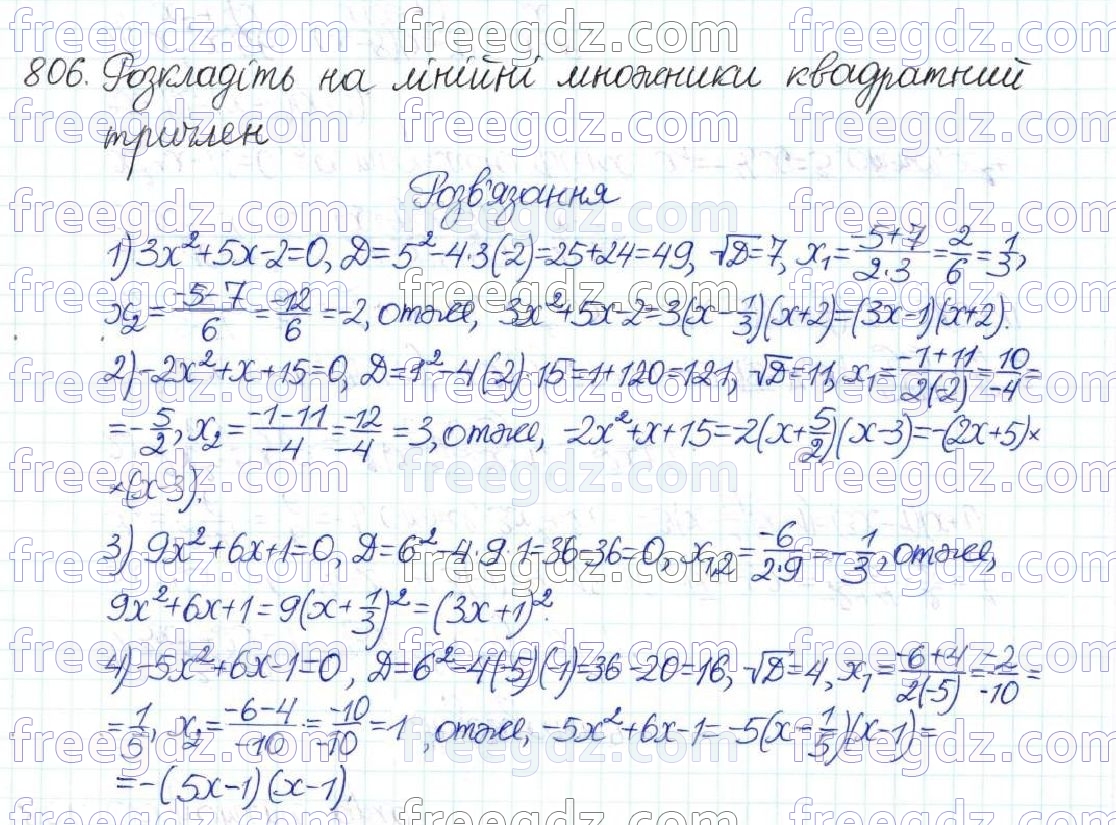 806. Розкладіть на лінійні множники квадратний
тричлен
Розв'язання
1) 3x²+5x-2=0, D=5²-4·3(-2)=25+24=49, √D=7, x₁=(-5+7)/(2·3)=2/6=1/3,
x₂=(-5-7)/6=-12/6=-2, отже, 3x²+5x-2=3(x-1/3)(x+2)=(3x-1)(x+2).
2) -2x²+x+15=0, D=1²-4(-2)·15=1+120=121, √D=11, x₁=(-1+11)/(2(-2))=10/-4=
=-5/2, x₂=(-1-11)/-4=-12/-4=3, отже, -2x²+x+15=-2(x+5/2)(x-3)=-(2x+5)×
×(x-3).
3) 9x²+6x+1=0, D=6²-4·9·1=36-36=0, x₁,₂=-6/(2·9)=-1/3, отже,
9x²+6x+1=9(x+1/3)²=(3x+1)².
4) -5x²+6x-1=0, D=6²-4(-5)(-1)=36-20=16, √D=4, x₁=(-6+4)/(2(-5))=-2/-10=
=1/6, x₂=(-6-4)/-10=-10/-10=1, отже, -5x²+6x-1=-5(x-1/5)(x-1)=
=-(5x-1)(x-1).